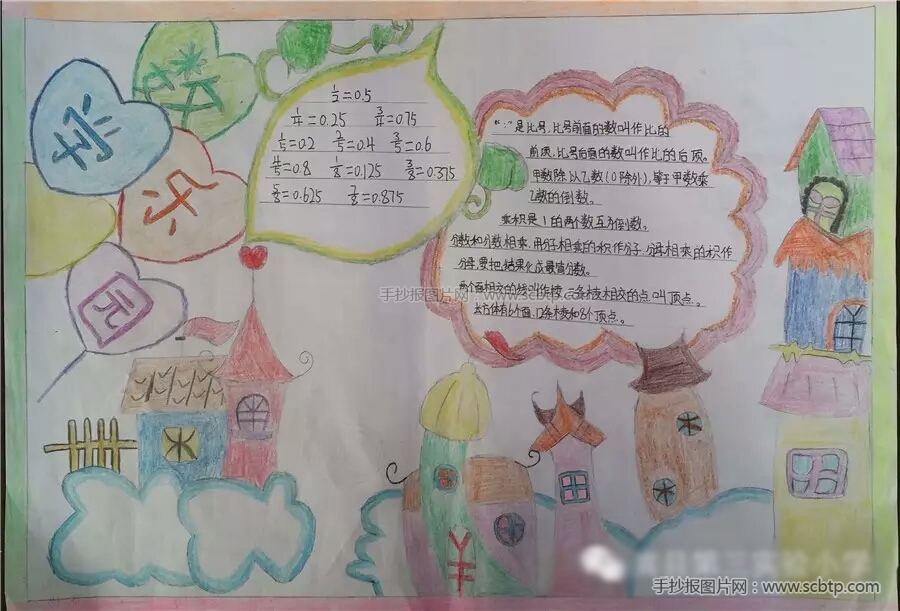 数
学
乐
园
1/2=0.5
1/4=0.25 3/4=0.75
1/5=0.2 2/5=0.4 3/5=0.6
4/5=0.8 1/8=0.125 3/8=0.375
5/8=0.625 7/8=0.875
“:”是比号,比号前面的数叫作比的
前项,比号后面的数叫作比的后项。
甲数除以乙数(0除外),等于甲数乘
乙数的倒数。
乘积是1的两个数互为倒数。
分数和分数相乘,用分子相乘的积作分子,分母相乘的积作
分母,要把结果化成最简分数。
两个面相交的线叫作棱,三条棱相交的点叫顶点。
长方体有6个面,12条棱和8个顶点。
手抄报图片网:www.scbtp.com
第三实验小学
手抄报图片网:www.scbtp.com